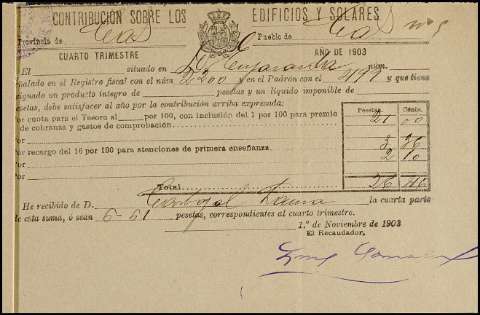 CONTRIBUCIÓN SOBRE LOS EDIFICIOS Y SOLARES
Provincia de Pueblo de
CUARTO TRIMESTRE AÑO DE 1903
El situado en núm.
ñalado en el Registro fiscal con el núm 2200 y en el Padrón con el y que tiene
signado un producto íntegro de pesetas y un líquido imponible de
esetas, debe satisfacer al año por la contribución arriba expresada:
Pesetas Cénts.
or cuota para el Tesoro al por 100, con inclusión del 1 por 100 para premio
de cobranza y gastos de comprobación 21 00
or
or recargo del 16 por 100 para atenciones de primera enseñanza. 3 36
or 2 10
Total 26 46
He recibido de D. la cuarta parte
de esta suma, ó sean 6-61 pesetas, correspondientes al cuarto trimestre.
1.º de Noviembre de 1903
El Recaudador,